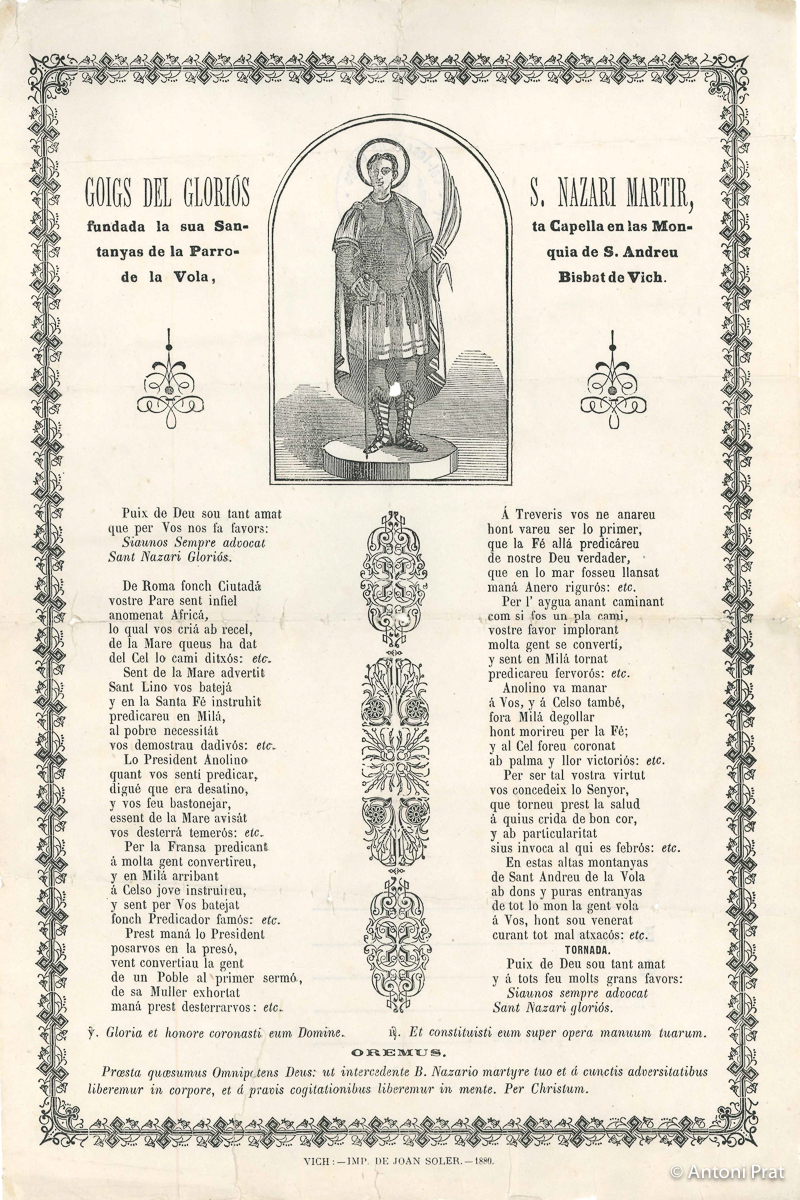 GOIGS DEL GLORIÓS S. NAZARI MARTIR,
fundada la sua San- ta Capella en las Mon-
tanyas de la Parro- quia de S. Andreu
de la Vola, Bisbat de Vich.
Puix de Deu sou tant amat
que per Vos nos fa favors:
Siaunos Sempre advocat
Sant Nazari Gloriós.
De Roma fonch Ciutadá
vostre Pare sent infiel
anomenat Africá,
lo qual vos criá ab recel,
de la Mare queus ha dat
del Cel lo cami ditxós: etc.
Sent de la Mare advertit
Sant Lino vos batejá
y en la Santa Fé instruhit
predicareu en Milá,
al pobre necessitát
vos demostrau dadivós: etc.
Lo President Anolino
quant vos senti predicar,
digué que era desatino,
y vos feu bastonejar,
essent de la Mare avisát
vos desterrá temerós: etc.
Per la Fransa predicant
á molta gent convertireu,
y en Milá arribant
á Celso jove instruireu,
y sent per Vos batejat
fonch Predicador famós: etc.
Prest maná lo President
posarvos en la presó,
vent convertiau la gent
de un Poble al primer sermó,
de sa Muller exhortat
maná prest desterrarvos: etc.
Á Treveris vos ne anareu
hont vareu ser lo primer,
que la Fé allá predicáreu
de nostre Deu verdader,
que en lo mar fosseu llansat
maná Anero rigurós: etc.
Per l' aygua anant caminant
com si fos un pla cami,
vostre favor implorant
molta gent se convertí,
y sent en Milá tornat
predicareu fervorós: etc.
Anolino va manar
á Vos, y á Celso també,
fora Milá degollar
hont morireu per la Fé;
y al Cel foreu coronat
ab palma y llor victoriós: etc.
Per ser tal vostra virtut
vos concedeix lo Senyor,
que torneu prest la salud
á quius crida de bon cor,
y ab particularitat
sius invoca al qui es febrós: etc.
En estas altas montanyas
de Sant Andreu de la Vola
ab dons y puras entranyas
de tot lo mon la gent vola
á Vos, hont sou venerat
curant tot mal atxacós: etc.
TORNADA.
Puix de Deu sou tant amat
y á tots feu molts grans favors:
Siaunos sempre advocat
Sant Nazari gloriós.
℣. Gloria et honore coronasti eum Domine. ℟. Et constituisti eum super opera manuum tuarum.
OREMUS.
Præsta quæsumus Omnipotens Deus: ut intercedente B. Nazario martyre tuo et á cunctis adversitatibus
liberemur in corpore, et á pravis cogitationibus liberemur in mente. Per Christum.
VICH:—IMP. DE JOAN SOLER.—1880.
© Antoni Prat